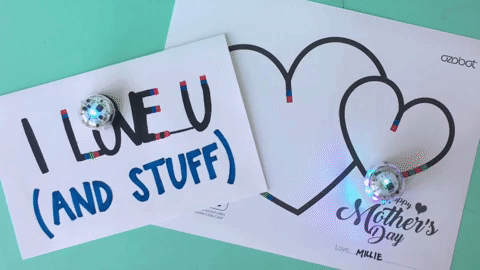 I LOVE U
(AND STUFF)
ozobot
Happy
Mother's
Day
LOVE, MILLIE